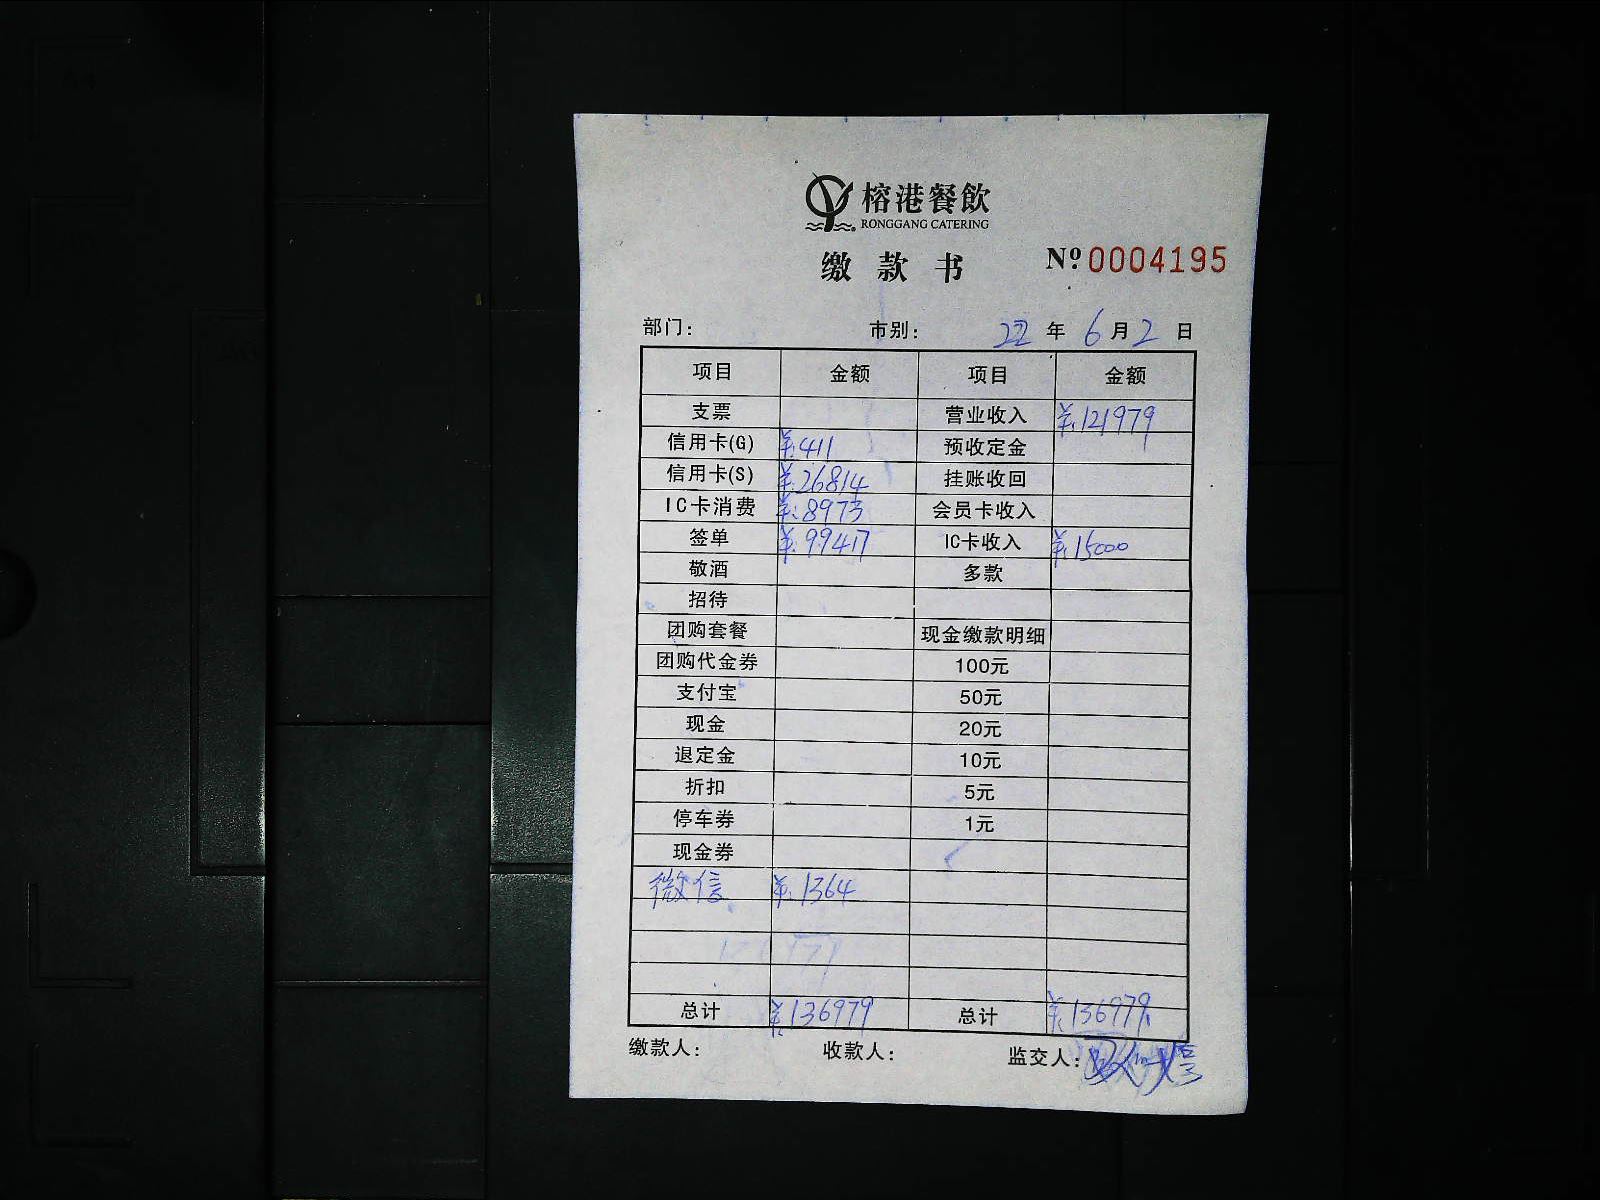 榕港餐飲
RONGGANG CATERING
缴款书 Nº 0004195
部门： 市别： 22 年 6 月 2 日
项目 金额 项目 金额
支票 营业收入 ¥:121979
信用卡(G) ¥:411 预收定金
信用卡(S) ¥:26814 挂账收回
IC卡消费 ¥:8973 会员卡收入
签单 ¥:99417 IC卡收入 ¥:15000
敬酒 多款
招待
团购套餐 现金缴款明细
团购代金券 100元
支付宝 50元
现金 20元
退定金 10元
折扣 5元
停车券 1元
现金券
微信 ¥:1364
总计 ¥:136979 总计 ¥:136979
缴款人： 收款人： 监交人：